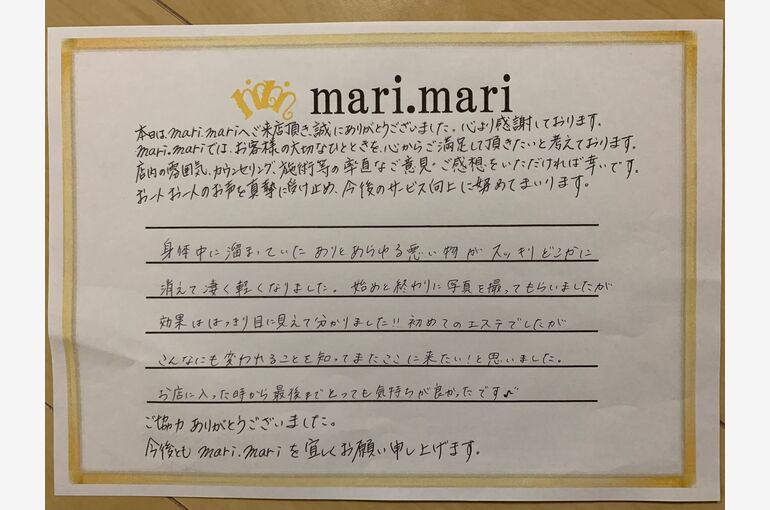 mari.mari
本日は、mari.mariへご来店頂き、誠にありがとうございました。心より感謝しております。
mari.mariでは、お客様の大切なひとときを、心からご満足して頂きたいと考えております。
店内の雰囲気、カウンセリング、施術等の率直なご意見・ご感想をいただければ幸いです。
お一人お一人のお声を真摯に受け止め、今後のサービス向上に努めてまいります。
身体中に溜まっていたありとあらゆる悪い物がスッキリどこかに
消えて凄く軽くなりました。始めと終わりに写真を撮ってもらいましたが
効果ははっきり目に見えて分かりました!!初めてのエステでしたが
こんなにも変われることを知ってまたここに来たい!と思いました。
お店に入った時から最後までとっても気持ちが良かったです♪
ご協力ありがとうございました。
今後とも mari.mari を宜しくお願い申し上げます。